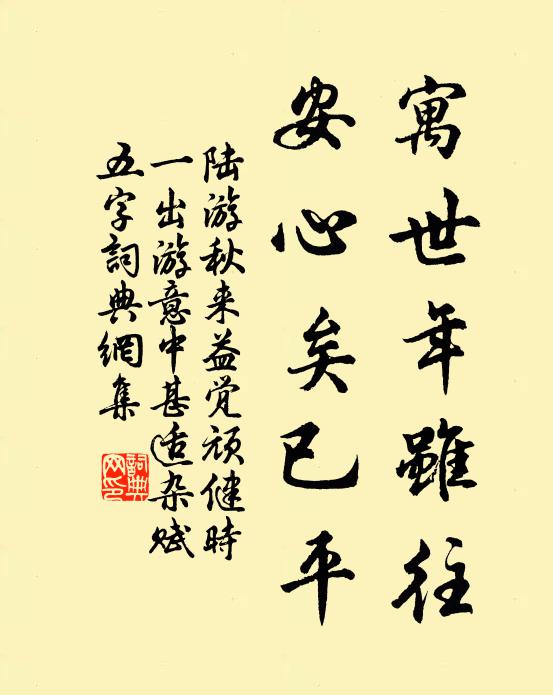 寓世年雖往
安心矣已平
陆游秋来益觉顽健時
一出游意中甚适杂赋
五字詞典網集
詞典
网印